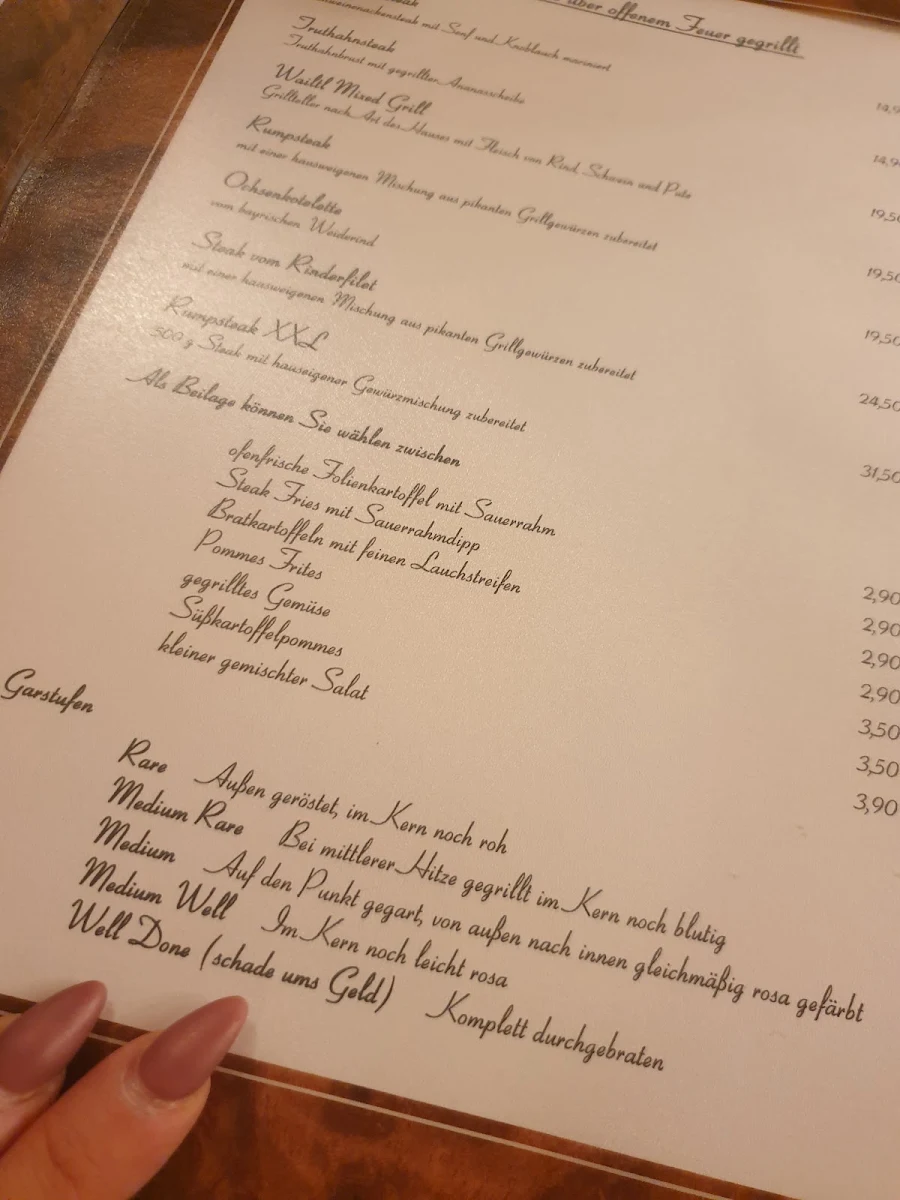 über offenem Feuer gegrillt
mit Senf und Knoblauch mariniert
14,9
Truthahnsteak
Truthahnbrust mit gegrillter Ananasscheibe
14,9
Waitl Mixed Grill
Grillteller nach Art des Hauses mit Fleisch von Rind, Schwein und Pute
19,50
Rumpsteak
mit einer hausweigenen Mischung aus pikanten Grillgewürzen zubereitet
19,50
Ochsenkotelette
vom bayrischen Weiderind
19,50
Steak vom Rinderfilet
mit einer hausweigenen Mischung aus pikanten Grillgewürzen zubereitet
24,50
Rumpsteak XXL
500 g Steak mit hauseigener Gewürzmischung zubereitet
31,50
Als Beilage können Sie wählen zwischen
ofenfrische Folienkartoffel mit Sauerrahm 2,90
Steak Fries mit Sauerrahmdipp 2,90
Bratkartoffeln mit feinen Lauchstreifen 2,90
Pommes Frites 2,90
gegrilltes Gemüse 3,50
Süßkartoffelpommes 3,50
kleiner gemischter Salat 3,90
Garstufen
Rare Außen geröstet, im Kern noch roh
Medium Rare Bei mittlerer Hitze gegrillt im Kern noch blutig
Medium Auf den Punkt gegart, von außen nach innen gleichmäßig rosa gefärbt
Medium Well Im Kern noch leicht rosa
Well Done (schade ums Geld) Komplett durchgebraten